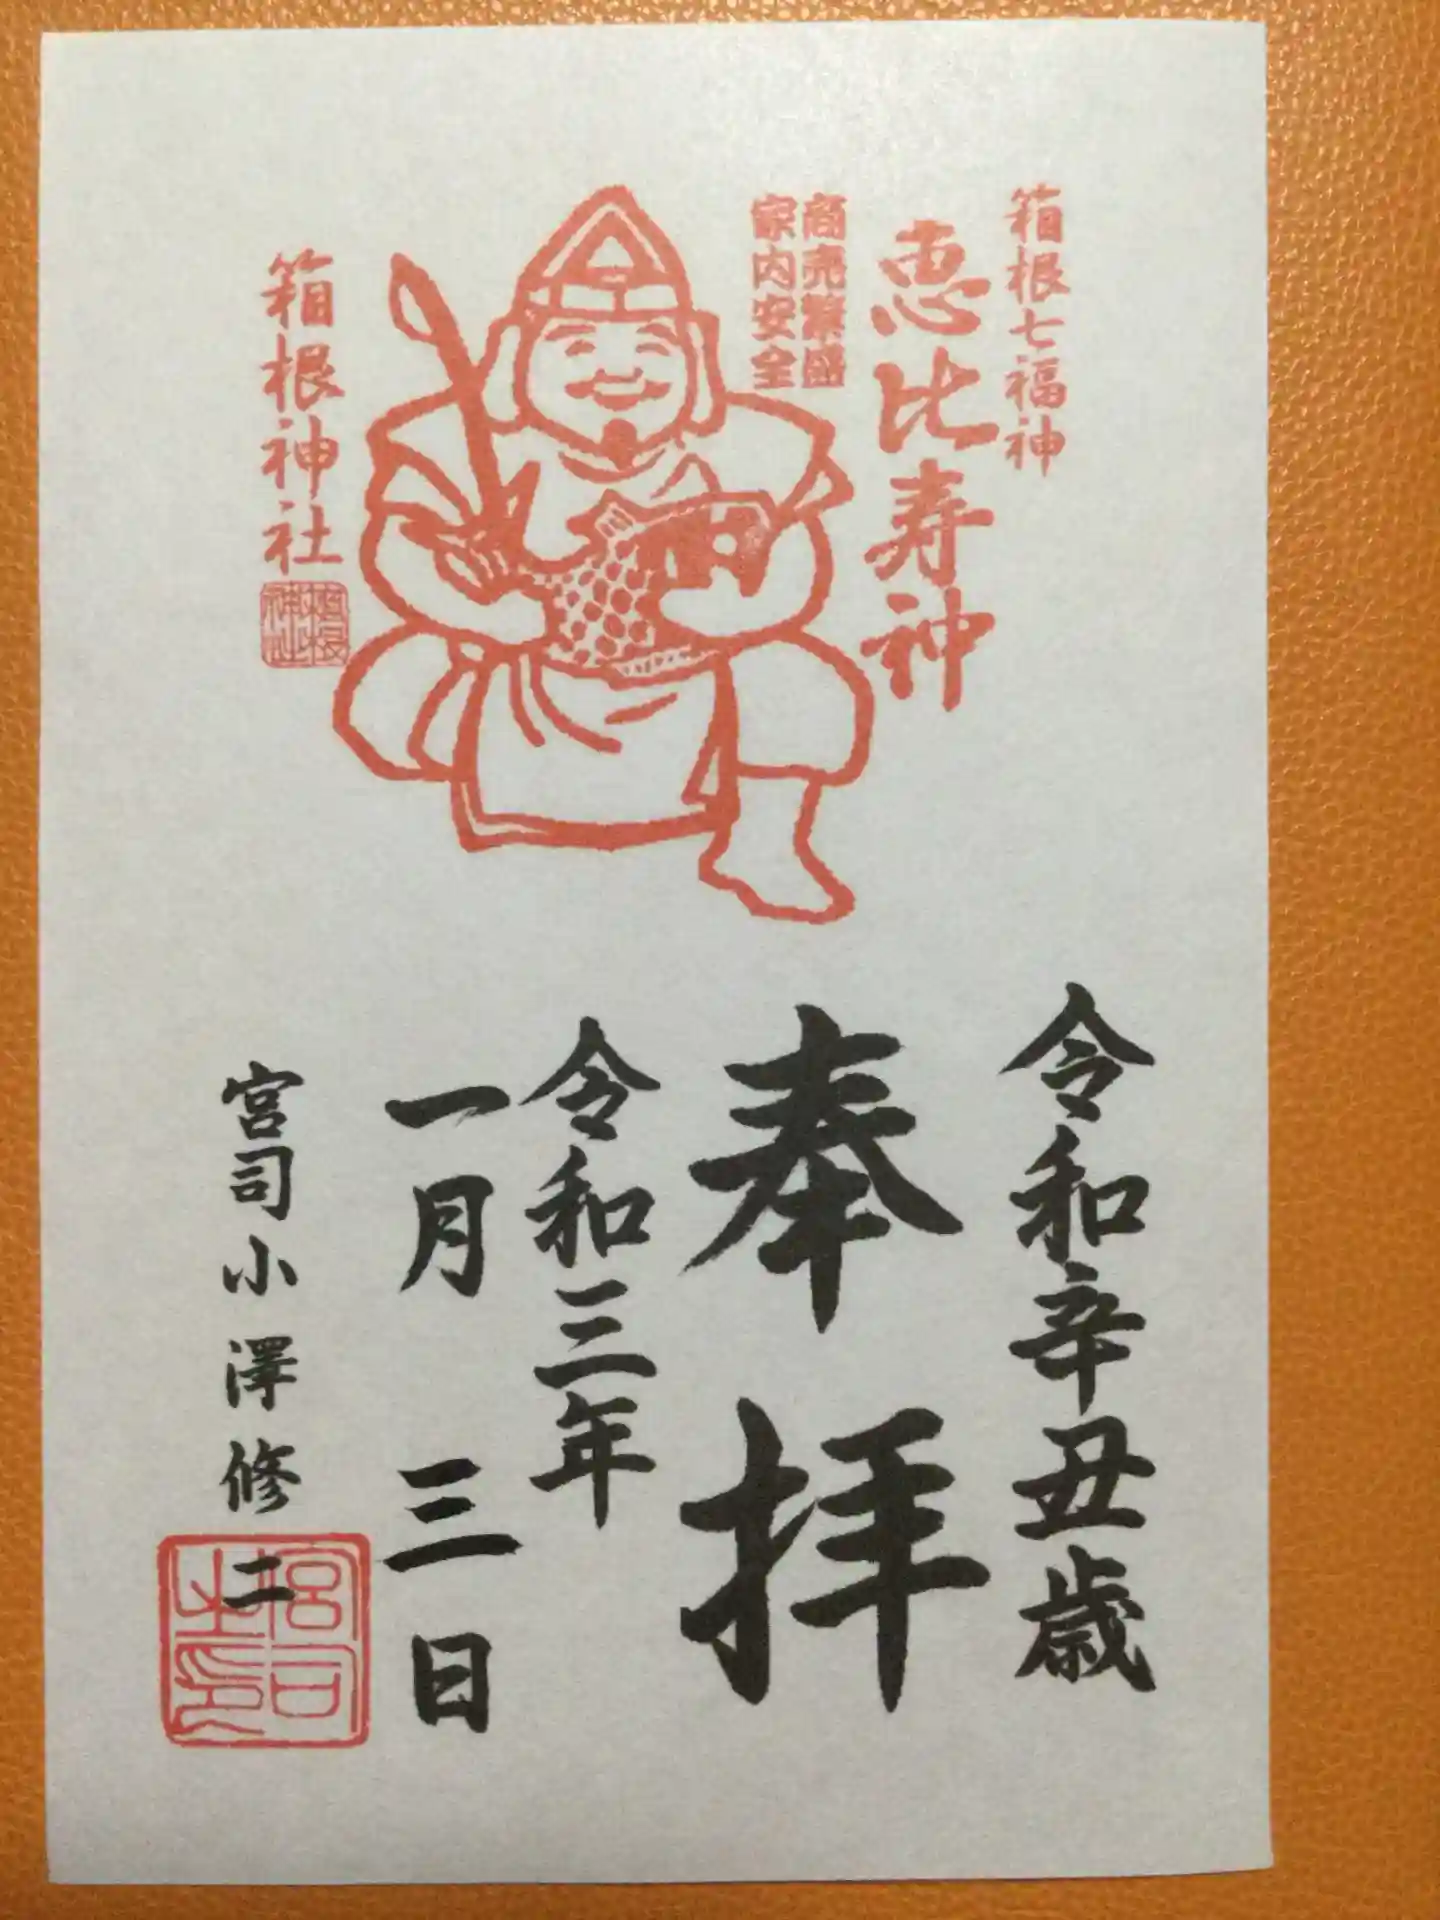 箱根七福神
恵比寿神
商売繁盛
家内安全
箱根神社
箱根
神社
令和辛丑歳
奉拝
令和三年
一月三日
宮司小澤修二
宮司
之印